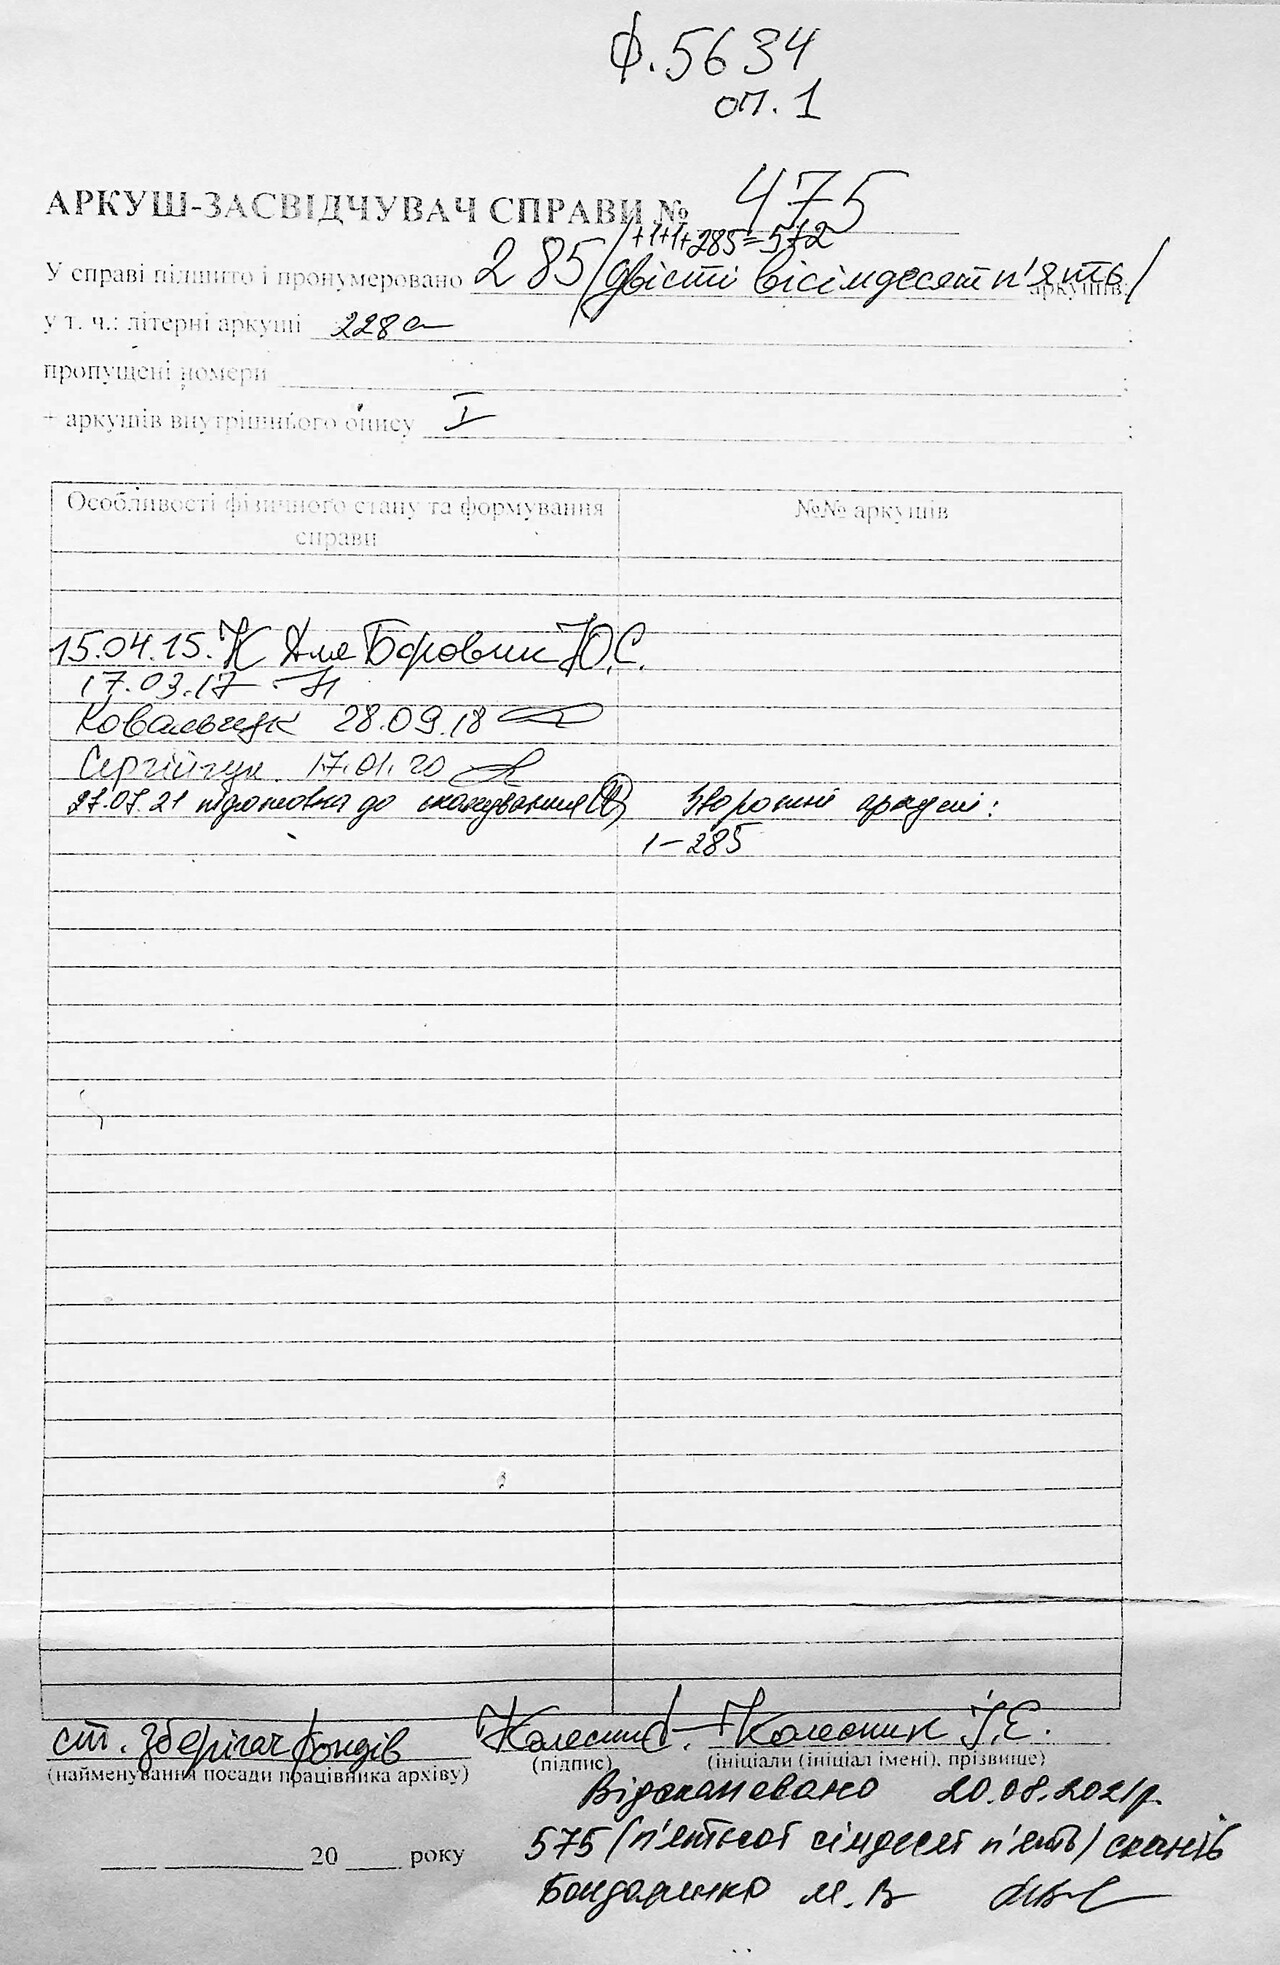 ф. 5634
оп. 1
АРКУШ-ЗАСВІДЧУВАЧ СПРАВИ № 475
+1+1+285=572
У справі підшито і пронумеровано 285 /двісті вісімдесят п'ять/ аркушів;
у т. ч.: літерні аркуші 228а ;
пропущені номери ;
+ аркушів внутрішнього опису 1 ;
Особливості фізичного стану та формування справи
№№ аркушів
15.04.15. Для Боровик Ю.С.
17.03.17
Ковальчук 28.09.18
Сергійчук 17.01.20
27.07.21 підготовка до сканування Зворотні аркуші:
1-285
ст. зберігач фондів Колесник І.Є.
(найменування посади працівника архіву) (підпис) (ініціали (ініціал імені), прізвище)
Відскановано 20.08.2021р.
575 /п'ятсот сімдесят п'ять/ сканів
20 року
Бондаренко М.В